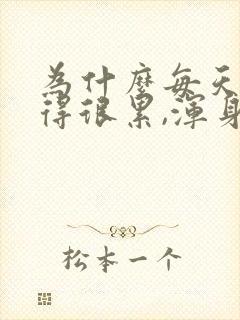 为什麼每天
得很累,渾身
松本一个